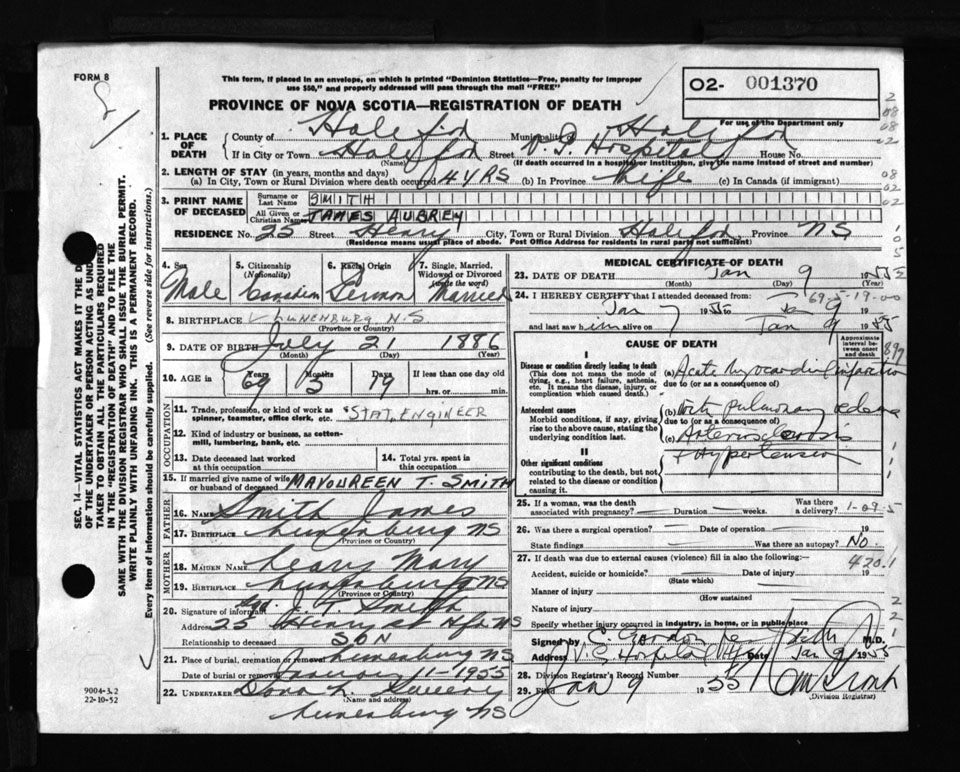 FORM 8
This form, if placed in an envelope, on which is printed "Dominion Statistics—Free, penalty for improper
use $50," and properly addressed will pass through the mail "FREE"
O2- 001370
For use of the Department only
PROVINCE OF NOVA SCOTIA—REGISTRATION OF DEATH
1. PLACE OF DEATH
County of Halifax Municipality of Halifax
If in City or Town Halifax Street V.G. Hospital House No.
(Name) (If death occurred in a hospital or institution, give the name instead of street and number)
2. LENGTH OF STAY (in years, months and days)
(a) In City, Town or Rural Division where death occurred 44 YRS (b) In Province Life (c) In Canada (if immigrant)
3. PRINT NAME OF DECEASED
Surname or Last Name SMITH
All Given or Christian Names JAMES AUBREY
RESIDENCE No. 25 Street Henry City, Town or Rural Division Halifax Province NS
(Residence means usual place of abode. Post Office Address for residents in rural part not sufficient)
4. Sex Male
5. Citizenship (Nationality) Canadian
6. Racial Origin German
7. Single, Married, Widowed or Divorced (write the word) Married
8. BIRTHPLACE LUNENBURG N.S
(Province or Country)
9. DATE OF BIRTH July 21 1886
(Month) (Day) (Year)
10. AGE in Years Months Days If less than one day old
69 5 19 hrs. or min.
OCCUPATION
11. Trade, profession, or kind of work as spinner, teamster, office clerk, etc. STAT. ENGINEER
12. Kind of industry or business, as cotton-mill, lumbering, bank, etc.
13. Date deceased last worked at this occupation
14. Total yrs. spent in this occupation
15. If married give name of wife or husband of deceased MAVOUREEN T. SMITH
FATHER
16. NAME Smith James
17. BIRTHPLACE Lunenburg NS
(Province or Country)
MOTHER
18. MAIDEN NAME Mary
19. BIRTHPLACE Lunenburg NS
(Province or Country)
20. Signature of informant J. T. Smith
Address 25 Henry St Hfx NS
Relationship to deceased SON
21. Place of burial, cremation or removal Lunenburg NS
Date of burial or removal 11-1955
22. UNDERTAKER
(Name and address)
Lunenburg NS
9004-3.2
22-10-52
SEC. 14—VITAL STATISTICS ACT MAKES IT THE D
OF THE UNDERTAKER OR PERSON ACTING AS UND
TAKER TO OBTAIN ALL THE PARTICULARS REQUIRED
IN THE "REGISTRATION OF DEATH" AND TO FILE THE
SAME WITH THE DIVISION REGISTRAR WHO SHALL ISSUE THE BURIAL PERMIT.
WRITE PLAINLY WITH UNFADING INK. THIS IS A PERMANENT RECORD.
Every item of information should be carefully supplied. (See reverse side for instructions.)
MEDICAL CERTIFICATE OF DEATH
23. DATE OF DEATH Jan 9 1955
(Month) (Day) (Year)
24. I HEREBY CERTIFY that I attended deceased from:
69-5-19-00
Jan 7 1955 to Jan 9 19
and last saw him alive on Jan 9 1955
CAUSE OF DEATH
Approximate interval between onset and death
I
Disease or condition directly leading to death
(This does not mean the mode of dying, e.g., heart failure, asthenia, etc. It means the disease, injury, or complication which caused death.)
(a) Acute Myocardial infarction
due to (or as a consequence of)
Antecedent causes
Morbid conditions, if any, giving rise to the above cause, stating the underlying condition last.
(b) with pulmonary edema
due to (or as a consequence of)
(c) Arteriosclerosis
+ Hypertension
II
Other significant conditions
contributing to the death, but not related to the disease or condition causing it.
25. If a woman, was the death associated with pregnancy? Duration weeks. Was there a delivery? 1-09-5
26. Was there a surgical operation? Date of operation 19
State findings Was there an autopsy? No.
27. If death was due to external causes (violence) fill in also the following:—
420.1
Accident, suicide or homicide? Date of injury 19
(State which)
Manner of injury
(How sustained)
Nature of injury
Specify whether injury occurred in industry, in home, or in public place
Signed by C. Gordon M.D.
Address V.G. Hospital Hfx Date Jan 9 1955
28. Division Registrar's Record Number
29. Filed Jan 9 1955
(Division Registrar)